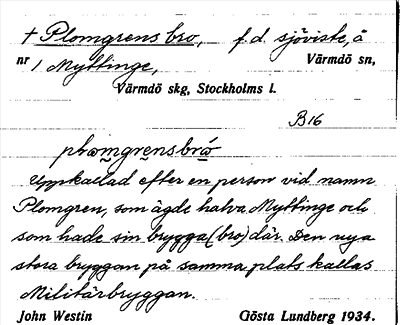 † Plomgrens bro, f.d. sjöviste, å
nr 1 Myttinge, Värmdö sn,
Värmdö skg, Stockholms l.
B16
plωmgrensbró
Uppkallad efter en person vid namn
Plomgren, som ägde halva Myttinge och
som hade sin brygga (bro) där. Den nya
stora bryggan på samma plats kallas
Militärbryggan.
John Westin Gösta Lundberg 1934.